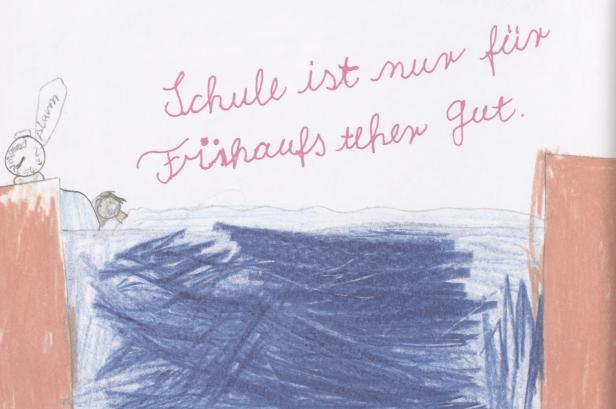 Alarm
Schule ist nur für
Frühaufsteher gut.